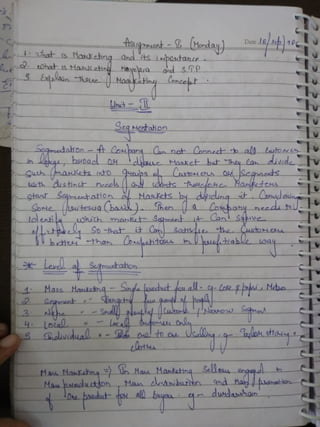 Assignment - 8 (Monday)
Date
1. What is Marketing and its importance.
2. What is Marketing Myopia and STP
3 Explain three Marketing Concept.
Unit - II
Segmentation
Segmentation - A Company Can not Connect to all Customer
in large, broad or diverse Market but they Can divide
Such Markets into groups of Customers or Segments
with distinct needs and wants therefore Marketers
start Segmentation of Markets by dividing it. Considering
Some Criteria (basis). Then a Company needs to
identify which market Segment it Can Serve
effectively So that it Can satisfice the Customers
better than Competitors in profitable way.
* Level of Segmentation
1. Mass Marketing - Single product for all - eg
2. Segment " - group of people
3. Niche " - Small Customer / Narrow Segment
4. Local " - Local Customer only
5. Individual " - one to one Selling eg
clothes
Mass Marketing => In Mass Marketing Sellers engaged in
Mass production, Mass distribution and Mass promotion
of One product for all buyers eg - doordarshan.